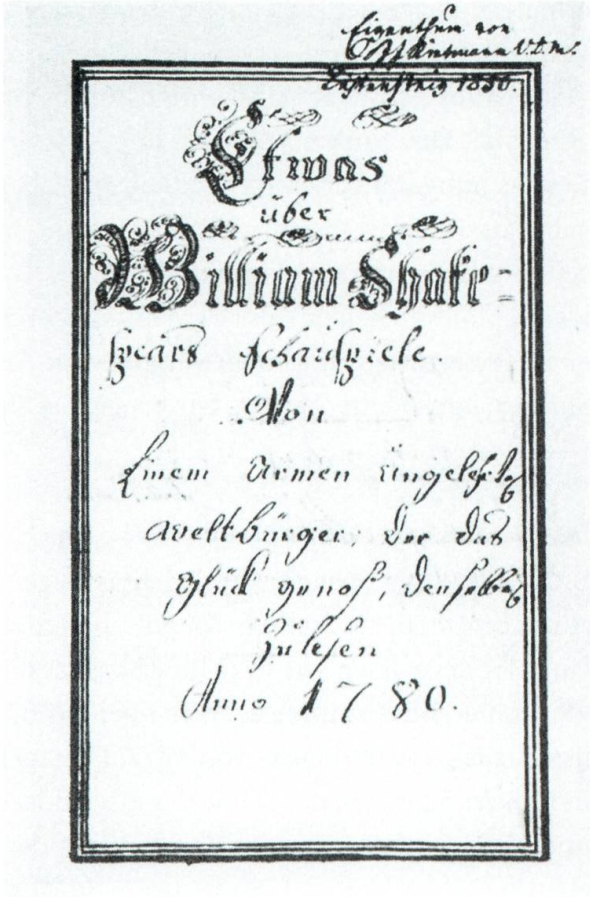 Eigenthum von
V. D. M.
1850.
Etwas
über
William Shake=
spears Schauspiele
Von
Einem Armen Ungelehrten
Weltbürger, Der Das
Glück genoß, Denselben
Zulesen
Anno 1780.